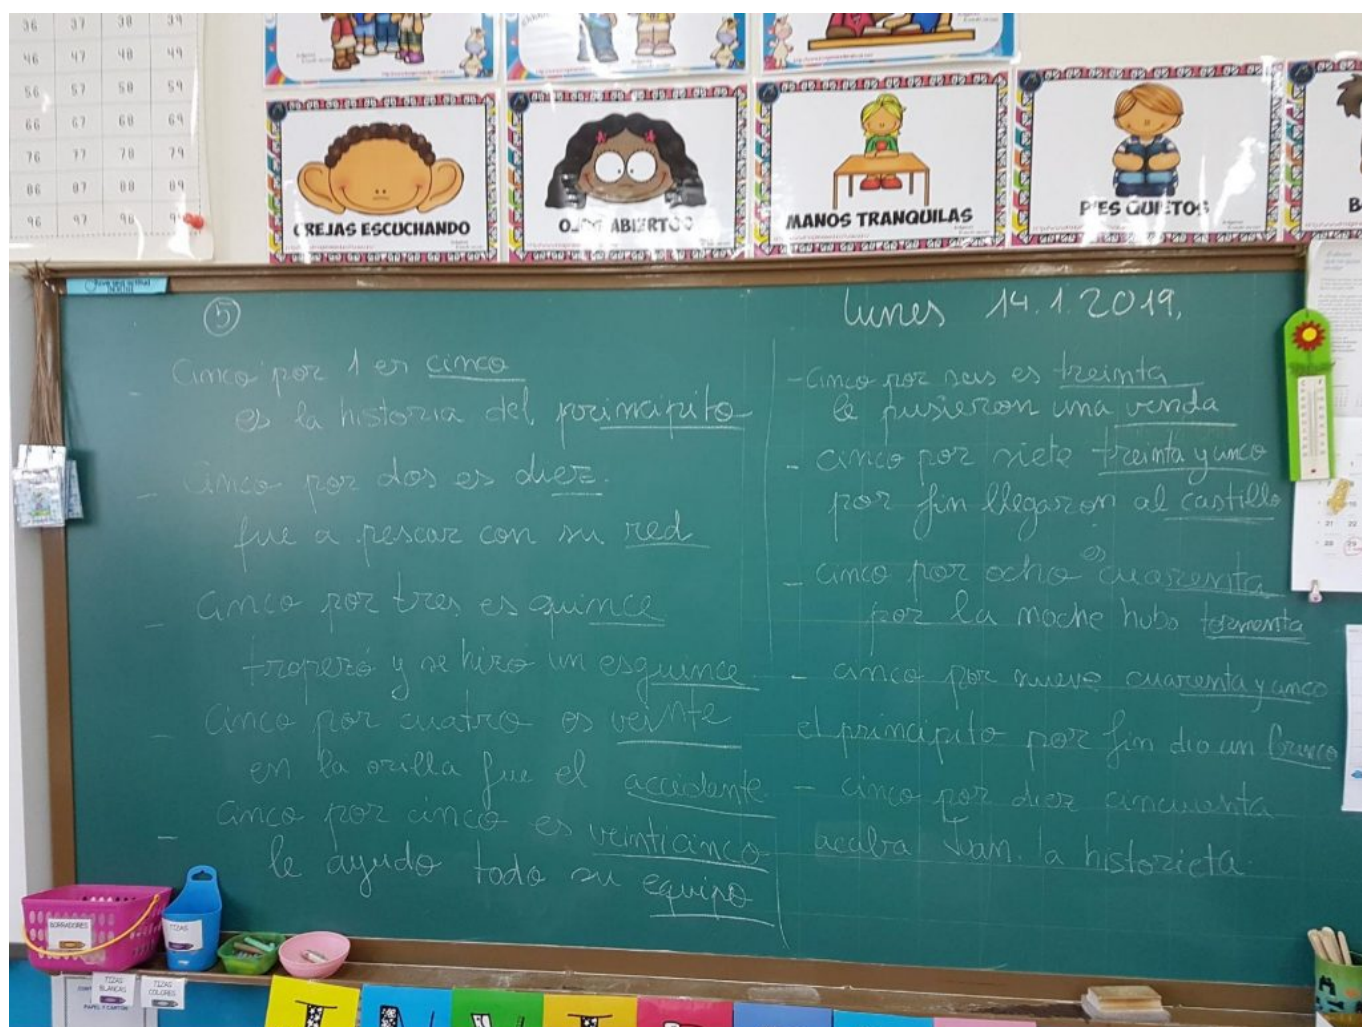 36 37 38 39
46 47 48 49
56 57 58 59
66 67 68 69
76 77 78 79
86 87 88 89
96 97 98
OREJAS ESCUCHANDO
OJOS ABIERTOS
MANOS TRANQUILAS
PIES QUIETOS
B
5
Cinco por 1 es cinco
es la historia del principito
- Cinco por dos es diez.
fue a pescar con su red
- Cinco por tres es quince
tropezó y se hizo un esguince
- Cinco por cuatro es veinte
en la orilla fue el accidente
- Cinco por cinco es veinticinco
le ayudo todo su equipo
lunes 14.1.2019,
- Cinco por seis es treinta
le pusieron una venda
- cinco por siete treinta y cinco
por fin llegaron al castillo
- cinco por ocho es cuarenta
por la noche hubo tormenta
- cinco por nueve cuarenta y cinco
el principito por fin dio un brinco
- cinco por diez cincuenta
acaba la historieta.
21 22
28 29
BORRADORES
TIZAS
TIZAS BLANCAS
TIZAS COLORES
PAPEL Y CARTÓN
I N V I